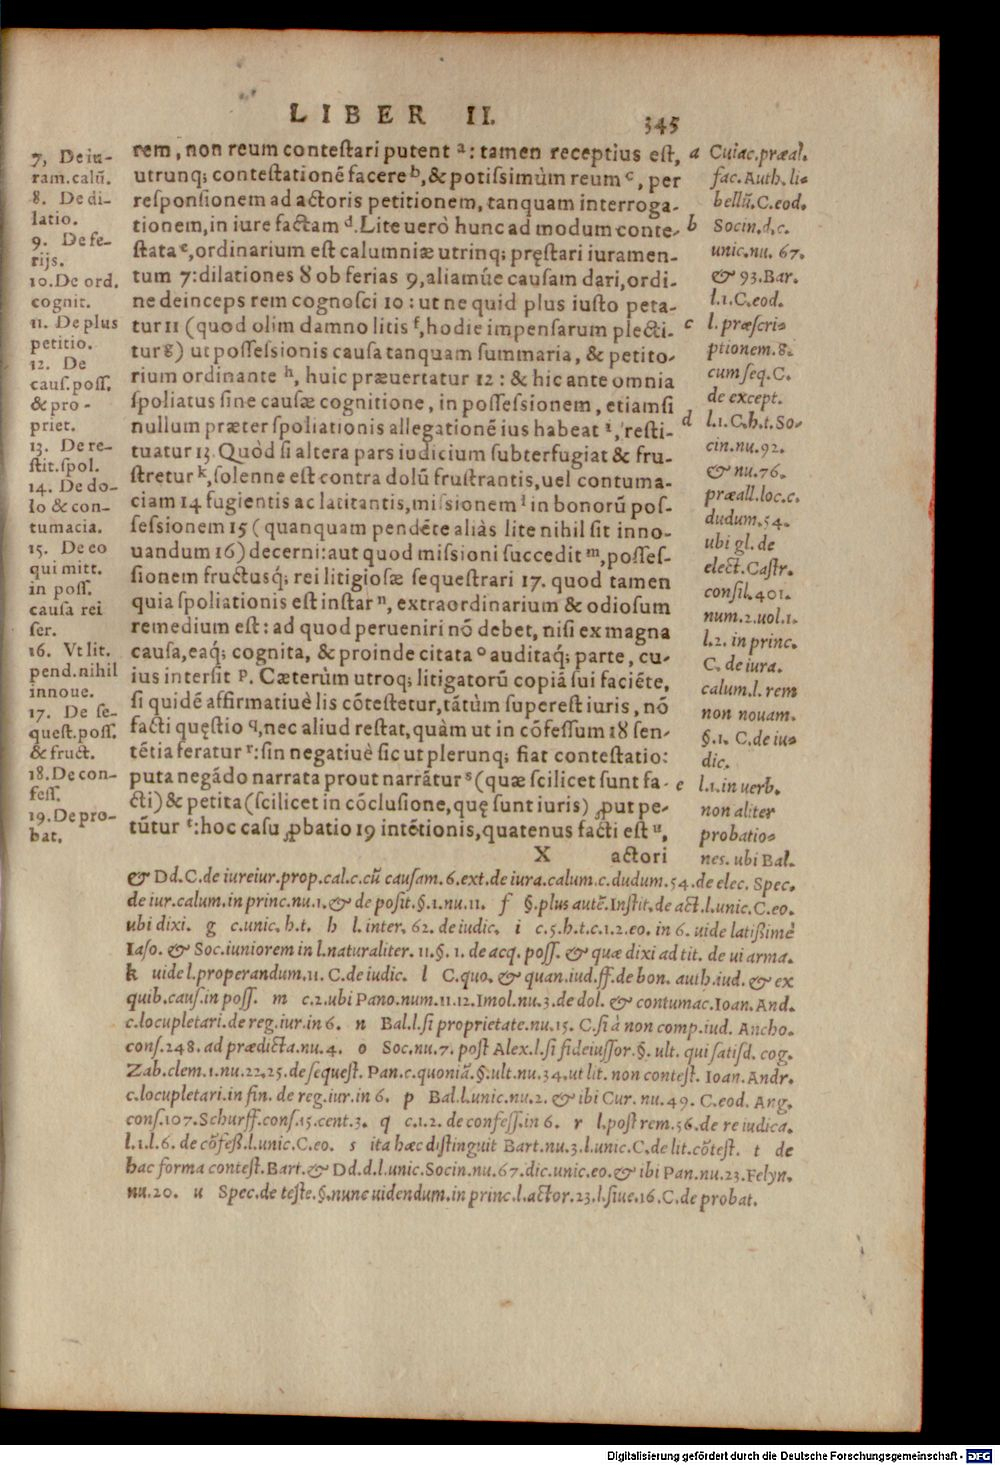 LIBER II. 345
rem, non reum contestari putent a: tamen receptius est,
utrunq; contestationẽ facere b, & potissimùm reum c, per
responsionem ad actoris petitionem, tanquam interroga-
tionem, in iure factam d. Lite uerò hunc ad modum conte-
stata e, ordinarium est calumniæ utrinq; pręstari iuramen-
tum 7: dilationes 8 ob ferias 9, aliamúe causam dari, ordi-
ne deinceps rem cognosci 10: ut ne quid plus iusto peta-
tur 11 (quod olim damno litis f, hodie impensarum plecti-
tur g) ut possessionis causa tanquam summaria, & petito-
rium ordinante h, huic præuertatur 12: & hic ante omnia
spoliatus sine causæ cognitione, in possessionem, etiamsi
nullum præter spoliationis allegationẽ ius habeat i, resti-
tuatur 13. Quòd si altera pars iudicium subterfugiat & fru-
stretur k, solenne est contra dolũ frustrantis, uel contuma-
ciam 14 fugientis ac latitantis, missionem l in bonorũ pos-
sessionem 15 (quanquam pendẽte aliàs lite nihil sit inno-
uandum 16) decerni: aut quod missioni succedit m, posses-
sionem fructusq́; rei litigiosæ sequestrari 17. quod tamen
quia spoliationis est instar n, extraordinarium & odiosum
remedium est: ad quod perueniri nõ debet, nisi ex magna
causa, eaq́; cognita, & proinde citata o auditaq́; parte, cu-
ius intersit p. Cæterùm utroq; litigatorũ copiã sui faciẽte,
si quidẽ affirmatiuè lis cõtestetur, tãtùm superest iuris, nõ
facti quęstio q, nec aliud restat, quàm ut in cõfessum 18 sen-
tẽtia feratur r: sin negatiuè sicut plerunq; fiat contestatio:
puta negãdo narrata prout narrãtur s (quæ scilicet sunt fa-
cti) & petita (scilicet in cõclusione, quę sunt iuris) ꝓut pe-
tũtur t: hoc casu ꝓbatio 19 intẽtionis, quatenus facti est u,
X actori
7, De iu-
ram. calũ.
8. De di-
latio.
9. De fe-
rijs.
10. De ord.
cognit.
11. De plus
petitio.
12. De
caus. poss.
& pro-
priet.
13. De re-
stit. spol.
14. De do-
lo & con-
tumacia.
15. De eo
qui mitt.
in poss.
causa rei
ser.
16. Vt lit.
pend. nihil
innoue.
17. De se-
quest. poss.
& fruct.
18. De con-
fess.
19. De pro-
bat.
a Cuiac. præal.
fac. Auth. li-
bellũ. C. eod.
b Socin. d. c.
unic. nu. 67.
& 93. Bar.
l. 1. C. eod.
c l. præscri-
ptionem. 8.
cum seq. C.
de except.
d l. 1. C. h. t. So-
cin. nu. 92.
& nu. 76.
præall. loc. c.
dudum. 54.
ubi gl. de
elect. Castr.
consil. 401.
num. 2. uol. 1.
l. 2. in princ.
C. de iura.
calum. l. rem
non nouam.
§. 1. C. de iu-
dic.
e l. 1. in uerb.
non aliter
probatio-
nes. ubi Bal.
& Dd. C. de iureiur. prop. cal. c. cũ causam. 6. ext. de iura. calum. c. dudum. 54. de elec. Spec.
de iur. calum. in princ. nu. 1. & de posit. §. 1. nu. 11. f §. plus autẽ. Instit. de act. l. unic. C. eo.
ubi dixi. g c. unic. h. t. h l. inter. 62. de iudic. i c. 5. h. t. c. 1. 2. eo. in 6. uide latißimè
Iaso. & Soc. iuniorem in l. naturaliter. 11. §. 1. de acq. poss. & quæ dixi ad tit. de ui arma.
k uide l. properandum. 11. C. de iudic. l C. quo. & quan. iud. ff. de bon. auth. iud. & ex
quib. caus. in poss. m c. 2. ubi Pano. num. 11. 12. Imol. nu. 3. de dol. & contumac. Ioan. And.
c. locupletari. de reg. iur. in 6. n Bal. l. si proprietate. nu. 15. C. si à non comp. iud. Ancho.
cons. 248. ad prædicta. nu. 4. o Soc. nu. 7. post Alex. l. si fideiussor. §. ult. qui satisd. cog.
Zab. clem. 1. nu. 22. 25. de sequest. Pan. c. quoniã. §. ult. nu. 34. ut lit. non contest. Ioan. Andr.
c. locupletari. in fin. de reg. iur. in 6. p Bal. l. unic. nu. 2. & ibi Cur. nu. 49. C. eod. Ang.
cons. 107. Schurff. cons. 15. cent. 3. q c. 1. 2. de confess. in 6. r l. post rem. 56. de re iudica.
l. 1. l. 6. de cõfeß. l. unic. C. eo. s ita hæc distinguit Bart. nu. 3. l. unic. C. de lit. cõtest. t de
hac forma contest. Bart. & Dd. d. l. unic. Socin. nu. 67. dic. unic. eo. & ibi Pan. nu. 23. Felyn.
nu. 20. u Spec. de teste. §. nunc uidendum. in princ. l. actor. 23. l. siue. 16. C. de probat.
Digitalisierung gefördert durch die Deutsche Forschungsgemeinschaft - DFG